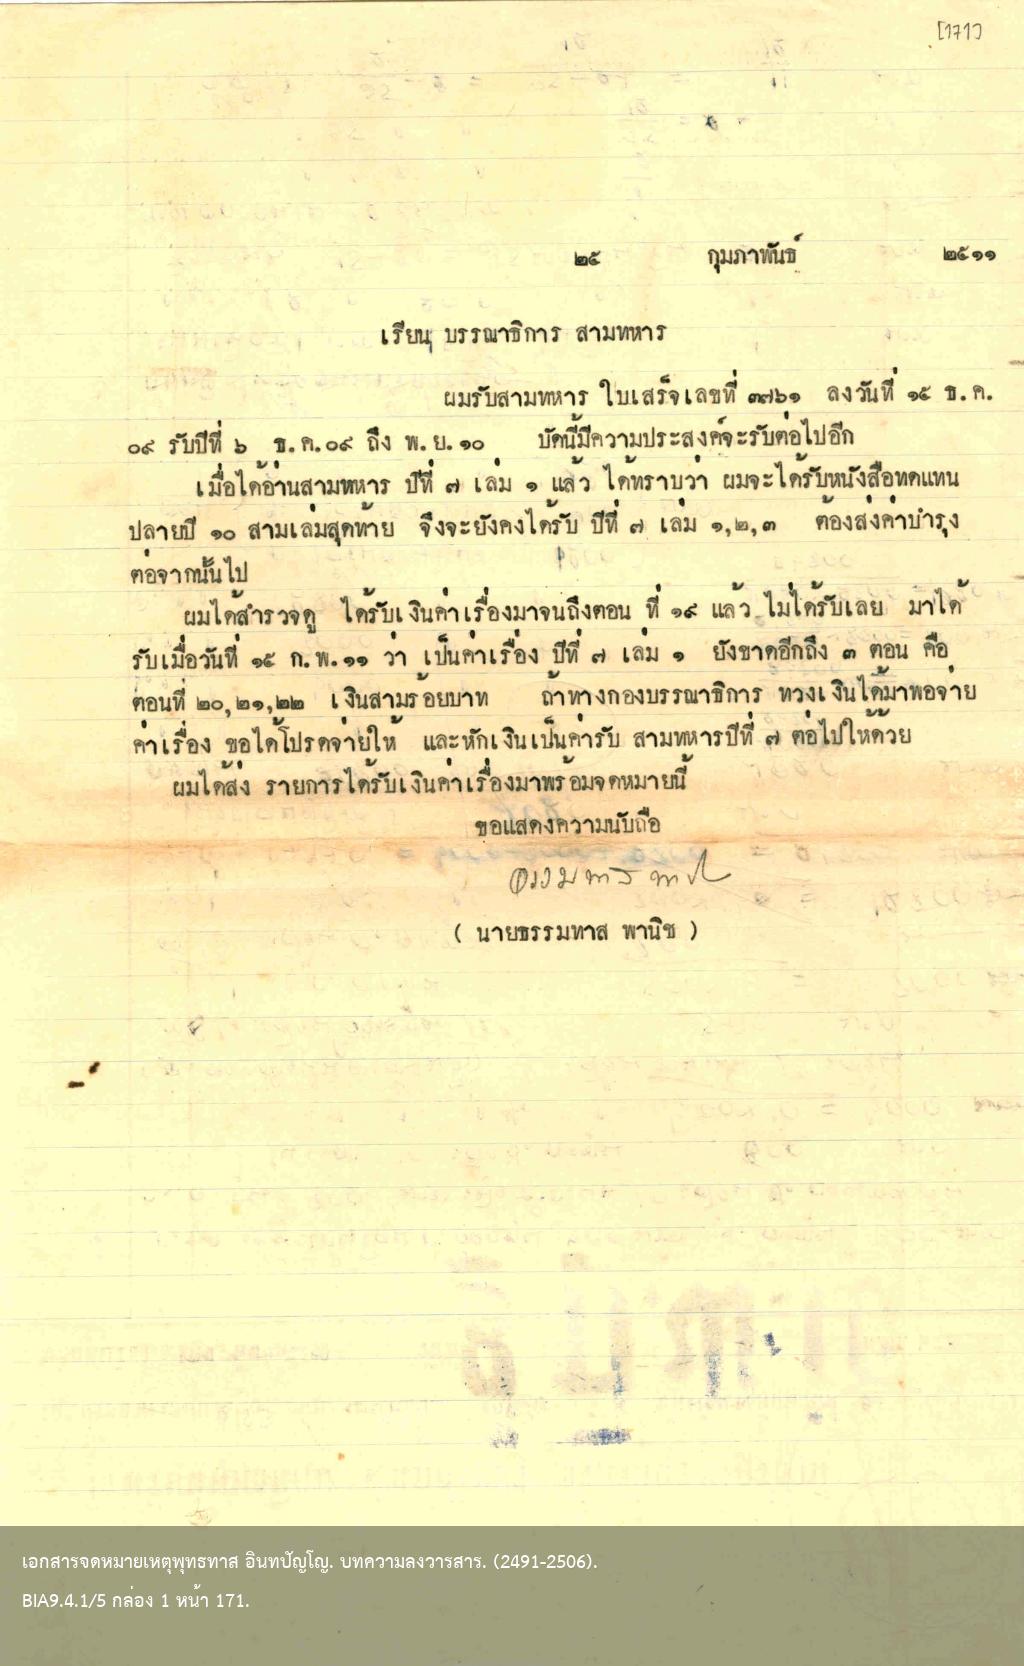 [171]
๒๕ กุมภาพันธ์ ๒๕๑๑
เรียน บรรณาธิการ สามทหาร
ผมรับสามทหาร ใบเสร็จเลขที่ ๓๗๖๑ ลงวันที่ ๑๕ ธ.ค.
๐๙ รับปีที่ ๖ ธ.ค.๐๙ ถึง พ.ย.๑๐ บัดนี้มีความประสงค์จะรับต่อไปอีก
เมื่อได้อ่านสามทหาร ปีที่ ๗ เล่ม ๑ แล้ว ได้ทราบว่า ผมจะได้รับหนังสือทดแทน
ปลายปี ๑๐ สามเล่มสุดท้าย จึงจะยังคงได้รับ ปีที่ ๗ เล่ม ๑,๒,๓ ต้องส่งค่าบำรุง
ต่อจากนั้นไป
ผมได้สำรวจดู ได้รับเงินค่าเรื่องมาจนถึงตอน ที่ ๑๙ แล้ว ไม่ได้รับเลย มาได้
รับเมื่อวันที่ ๑๕ ก.พ.๑๑ ว่า เป็นค่าเรื่อง ปีที่ ๗ เล่ม ๑ ยังขาดอีกถึง ๓ ตอน คือ
ตอนที่ ๒๐,๒๑,๒๒ เงินสามร้อยบาท ถ้าทางกองบรรณาธิการ ทวงเงินได้มาพอจ่าย
ค่าเรื่อง ขอได้โปรดจ่ายให้ และหักเงินเป็นค่ารับ สามทหารปีที่ ๗ ต่อไปให้ด้วย
ผมได้ส่ง รายการได้รับเงินค่าเรื่องมาพร้อมจดหมายนี้
ขอแสดงความนับถือ
ธรรมทาส พานิช
( นายธรรมทาส พานิช )
เอกสารจดหมายเหตุพุทธทาส อินทปัญโญ. บทความลงวารสาร. (2491-2506).
BIA9.4.1/5 กล่อง 1 หน้า 171.